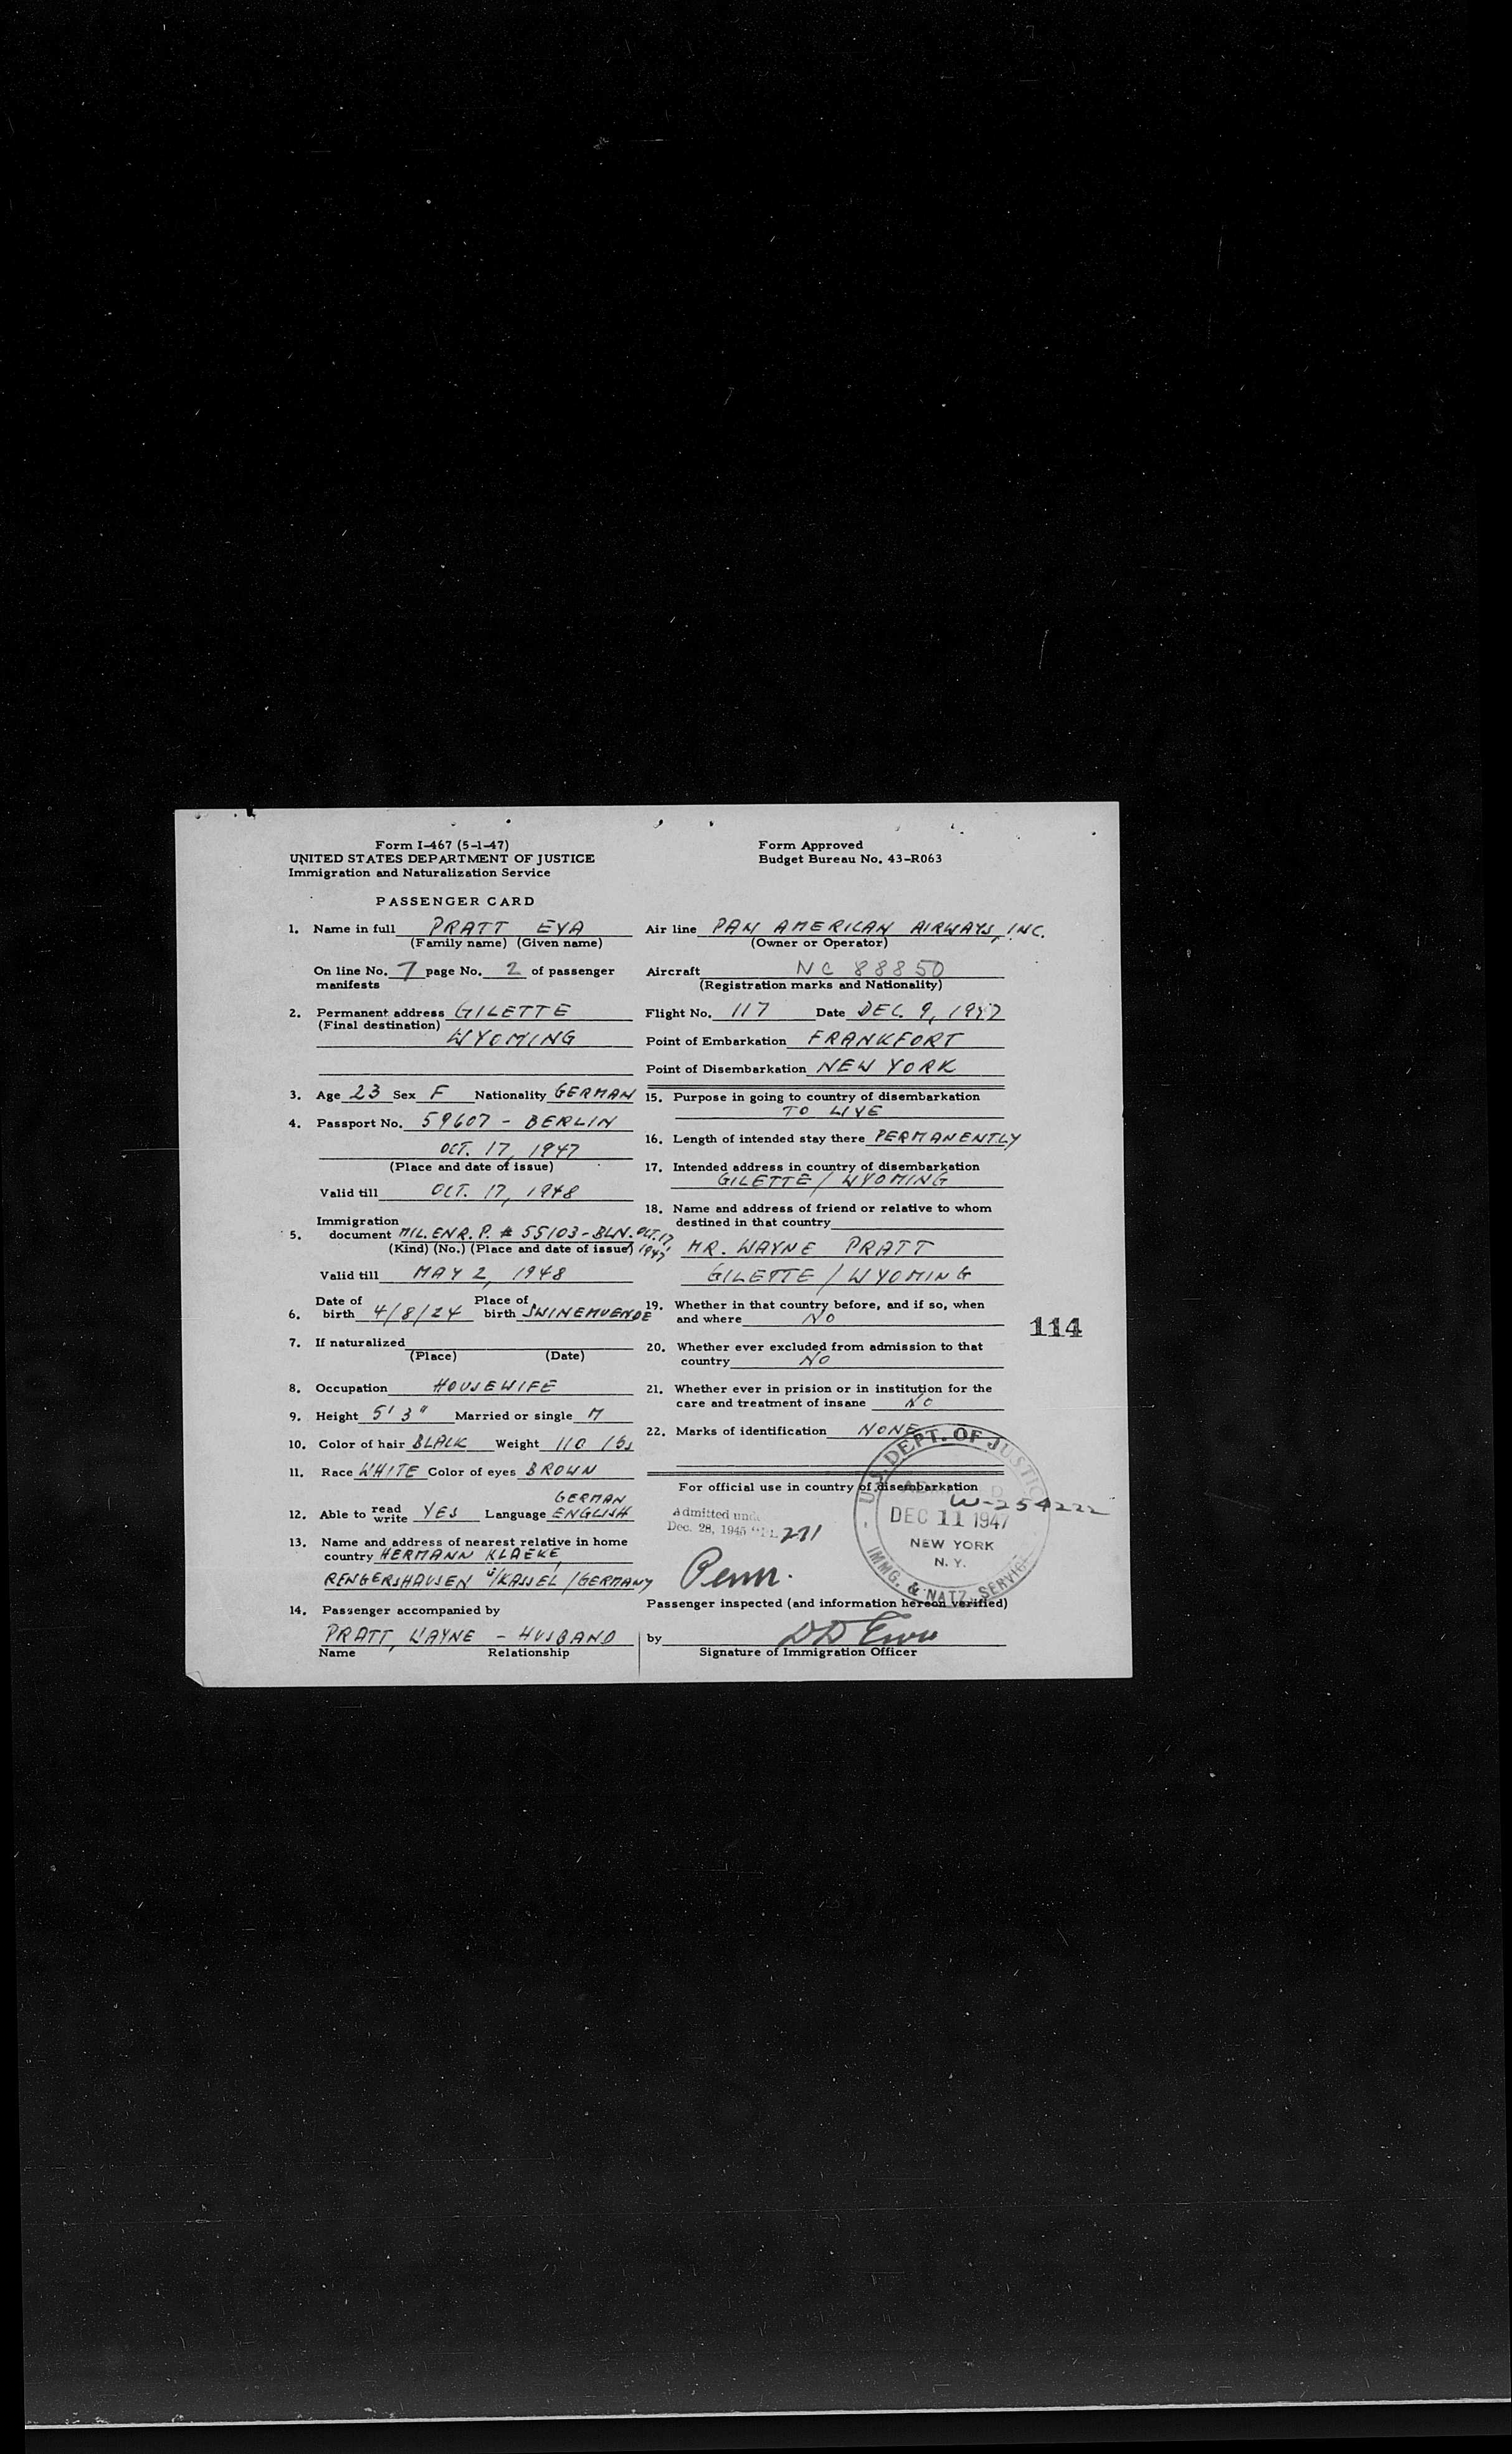 Form I-467 (5-1-47)
UNITED STATES DEPARTMENT OF JUSTICE
Immigration and Naturalization Service
Form Approved
Budget Bureau No. 43-R063
PASSENGER CARD
1. Name in full PRATT EVA
(Family name) (Given name)
On line No. 7 page No. 2 of passenger
manifests
2. Permanent address GILETTE
(Final destination)
WYOMING
3. Age 23 Sex F Nationality GERMAN
4. Passport No. 59607 - BERLIN
OCT. 17, 1947
(Place and date of issue)
Valid till OCT. 17, 1948
Immigration
5. document MIL. ENR. P. # 55103 - BLN. OCT. 17, 1947
(Kind) (No.) (Place and date of issue)
Valid till MAY 2, 1948
6. Date of birth 4/8/24 Place of birth SWINEMUENDE
7. If naturalized
(Place) (Date)
8. Occupation HOUSEWIFE
9. Height 5' 3" Married or single M
10. Color of hair BLACK Weight 110 lbs
11. Race WHITE Color of eyes BROWN
12. Able to read write YES Language GERMAN ENGLISH
13. Name and address of nearest relative in home
country HERMANN KLAEKE,
RENGERSHAUSEN /KASSEL /GERMANY
14. Passenger accompanied by
PRATT, WAYNE - HUSBAND
Name Relationship
Air line PAN AMERICAN AIRWAYS, INC.
(Owner or Operator)
Aircraft NC 88850
(Registration marks and Nationality)
Flight No. 117 Date DEC. 9, 1947
Point of Embarkation FRANKFORT
Point of Disembarkation NEW YORK
15. Purpose in going to country of disembarkation
TO LIVE
16. Length of intended stay there PERMANENTLY
17. Intended address in country of disembarkation
GILETTE / WYOMING
18. Name and address of friend or relative to whom
destined in that country
MR. WAYNE PRATT
GILETTE / WYOMING
19. Whether in that country before, and if so, when
and where NO
114
20. Whether ever excluded from admission to that
country NO
21. Whether ever in prision or in institution for the
care and treatment of insane NO
22. Marks of identification NONE
For official use in country of disembarkation
Admitted
Dec. 28, 1945 271
Perm.
U.S. DEPT. OF JUSTICE
W-254222
DEC 11 1947
NEW YORK
N. Y.
IMMG. & NATZ. SERVICE
Passenger inspected (and information hereon verified)
by
Signature of Immigration Officer